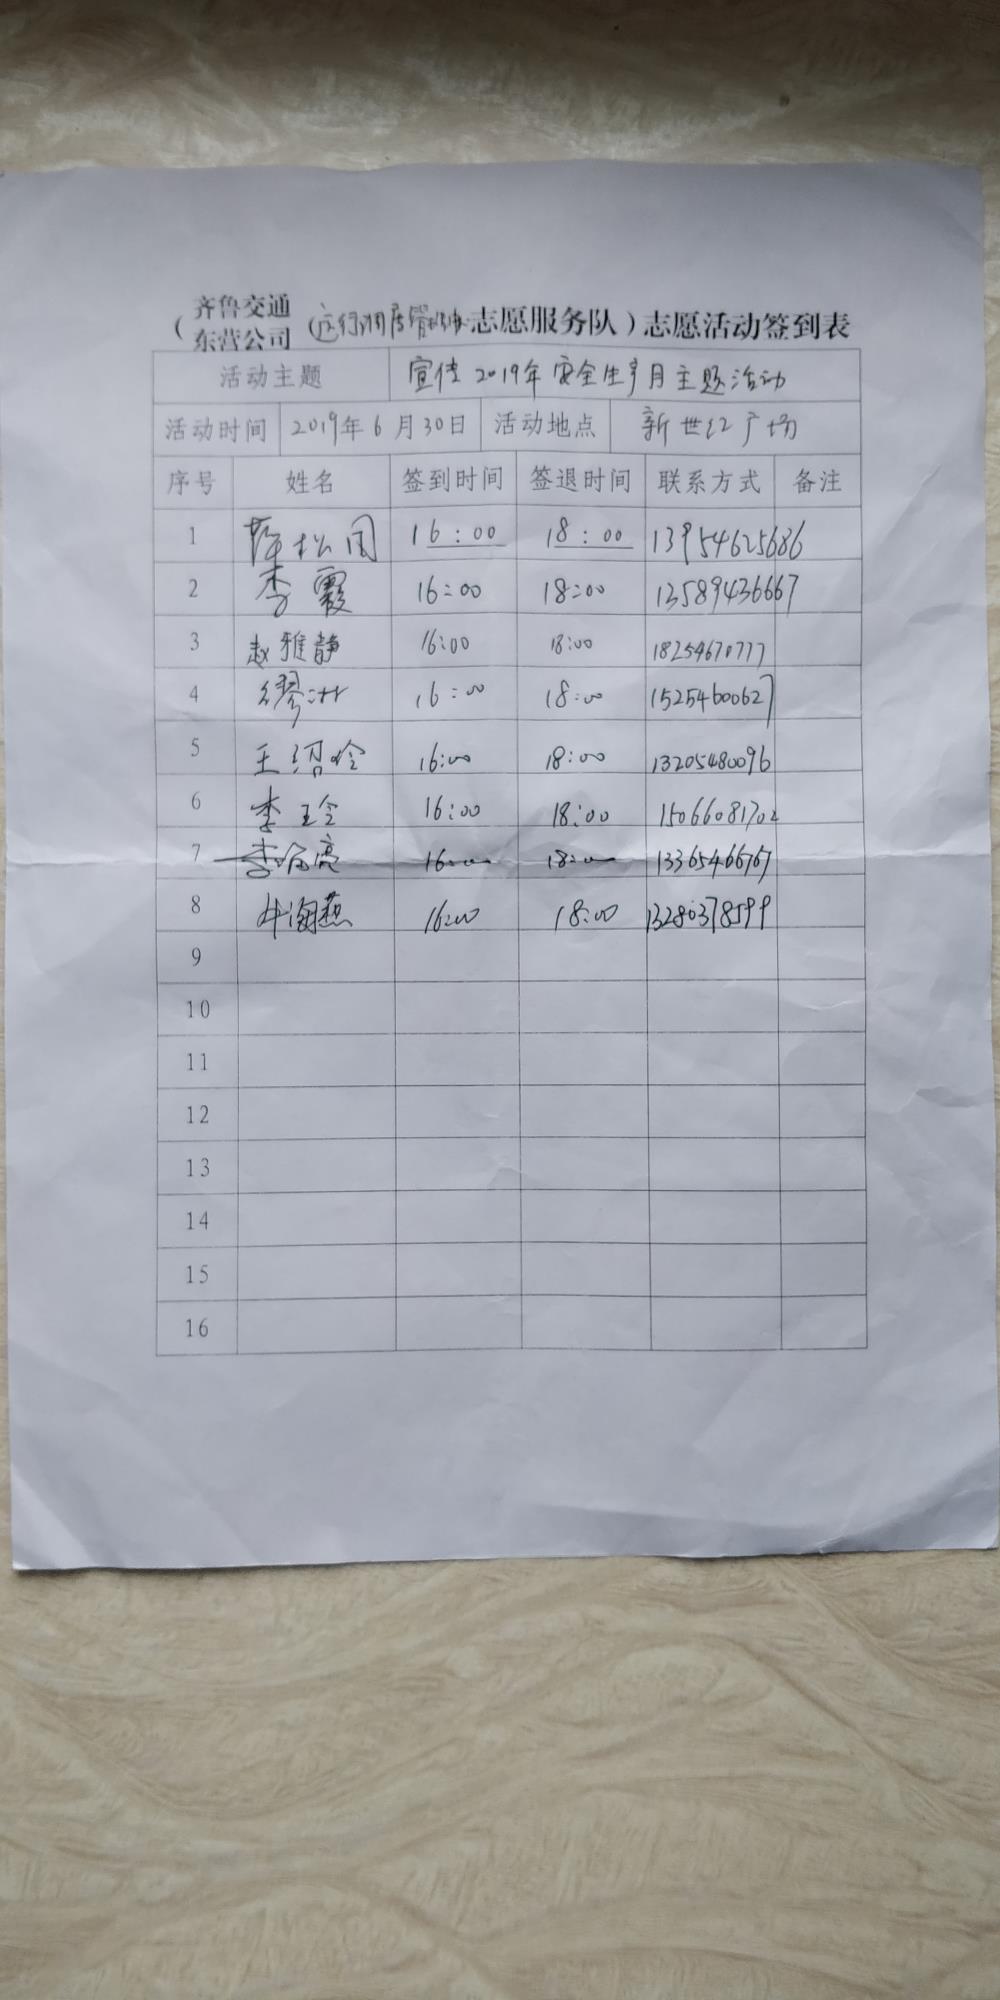 齐鲁交通
东营公司
(志愿服务队)志愿活动签到表
活动主题 宣传2019年安全生产月主题活动
活动时间 2019年6月30日 活动地点 新世纪广场
序号 姓名 签到时间 签退时间 联系方式 备注
1 16:00 18:00 13954625686
2 李霞 16:00 18:00 13589436667
3 赵雅静 16:00 18:00 18254670777
4 16:00 18:00 15254600627
5 王绍玲 16:00 18:00 13205480096
6 李玲 16:00 18:00 15066081702
7 16:00 18:00 13365466767
8 16:00 18:00 13280378599
9
10
11
12
13
14
15
16